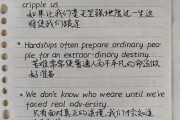 cripple us.
如果让我们毫无坚强地度过一生这
将使我们跛足
• Hardships often prepare ordinary peo-
ple for an extraor-dinary destiny.
苦难常常使普通人为不平凡的命运做
好准备
• We don't know who weare until we've
faced real adv-ersity.
只有面对真正的逆境,我们才会知道